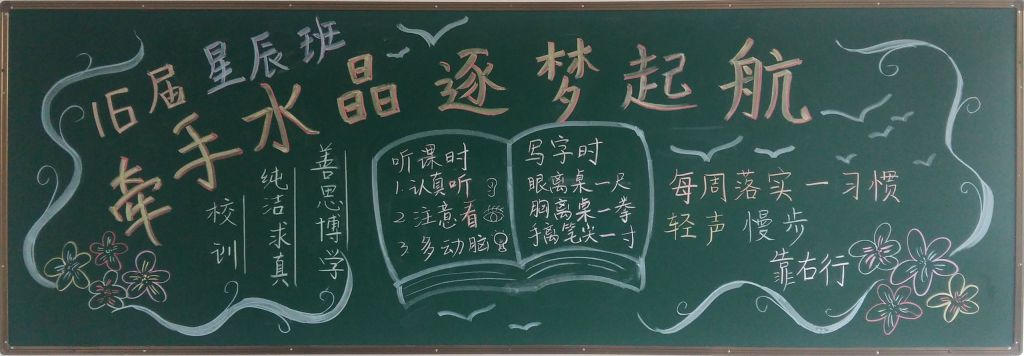 16届星辰班
牵手水晶逐梦起航
校训
纯洁求真
善思博学
听课时
1.认真听
2.注意看
3.多动脑
写字时
眼离桌一尺
胸离桌一拳
手离笔尖一寸
每周落实一习惯
轻声 慢步
靠右行